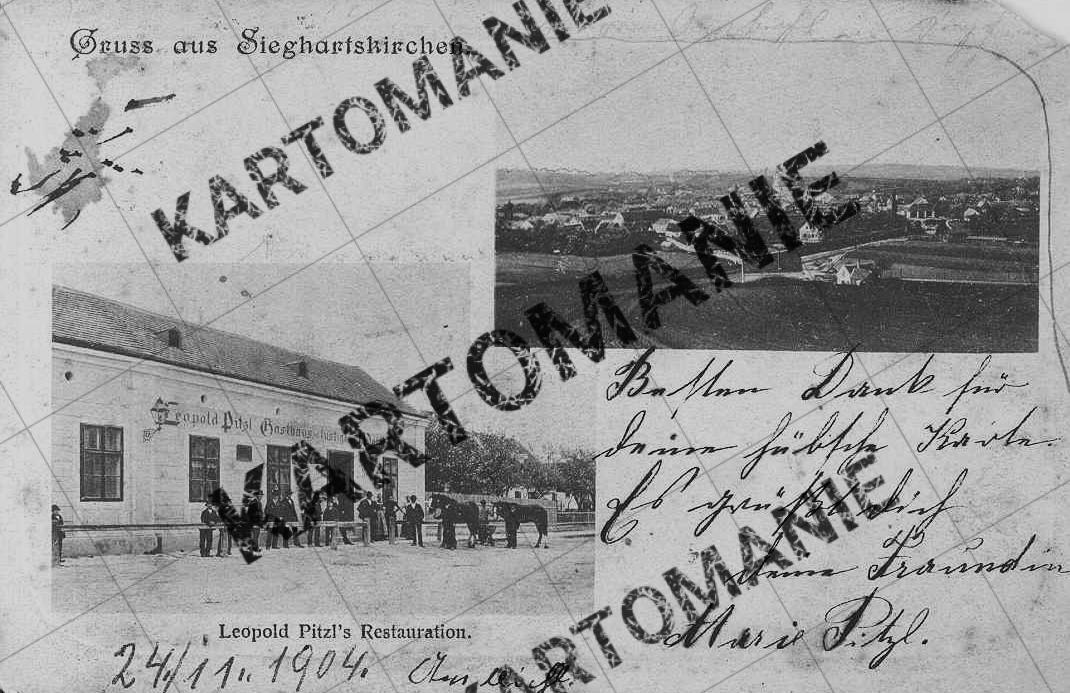 Gruss aus Sieghartskirchen
Leopold Pitzl Gasthaus
Leopold Pitzl's Restauration.
24./11. 1904.
Besten Dank für
deine hübsche Karte.
Es grüßt dich
deine Fräundin
Marie Pitzl.
KARTOMANIE
KARTOMANIE
KARTOMANIE